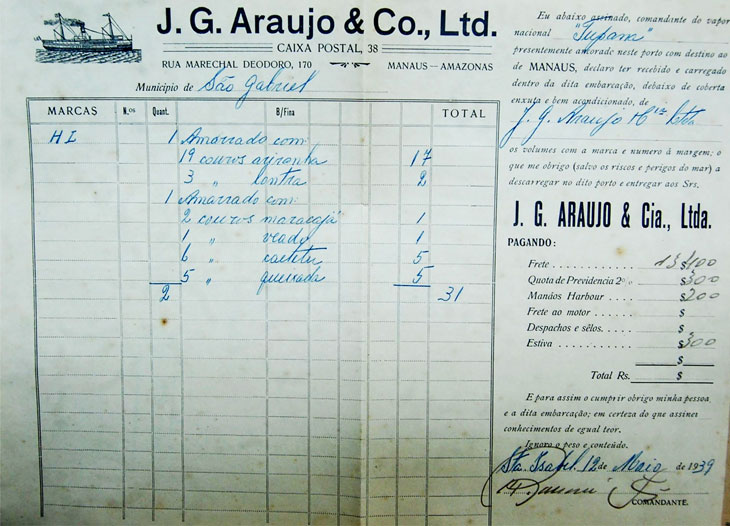 J. G. Araujo & Co., Ltd.
CAIXA POSTAL, 38
RUA MARECHAL DEODORO, 170 MANAUS — AMAZONAS
Municipio de São Gabriel
MARCAS N.os Quant. B/Fina TOTAL
HI 1 Amarrado com
19 couros ariranha 17
3 " lontra 2
1 Amarrado com
2 couros maracajá 1
1 " veado 1
6 " caetetu 5
5 " queixada 5
2 31
Eu abaixo assinado, comandante do vapor
nacional "Tupana"
presentemente amorado neste porto com destino ao
de MANAUS, declaro ter recebido e carregado
dentro da dita embarcação, debaixo de coberta
enxuta e bem acondicionado, de
J. G. Araujo & Cia Ltda
os volumes com a marca e numero à margem; o
que me obrigo (salvo os riscos e perigos do mar) a
descarregar no dito porto e entregar aos Srs.
J. G. ARAUJO & Cia., Ltda.
PAGANDO:
Frete 13$400
Quota de Previdencia 2% $300
Manáos Harbour $200
Frete ao motor $
Despachos e sêlos. $
Estiva $300
$
Total Rs. $
E para assim o cumprir obrigo minha pessoa
e a dita embarcação; em certeza do que assinei
conhecimentos de egual teor.
Ignoro o peso e conteúdo.
Sta. Isabel, 12 de Maio de 1939
COMANDANTE.